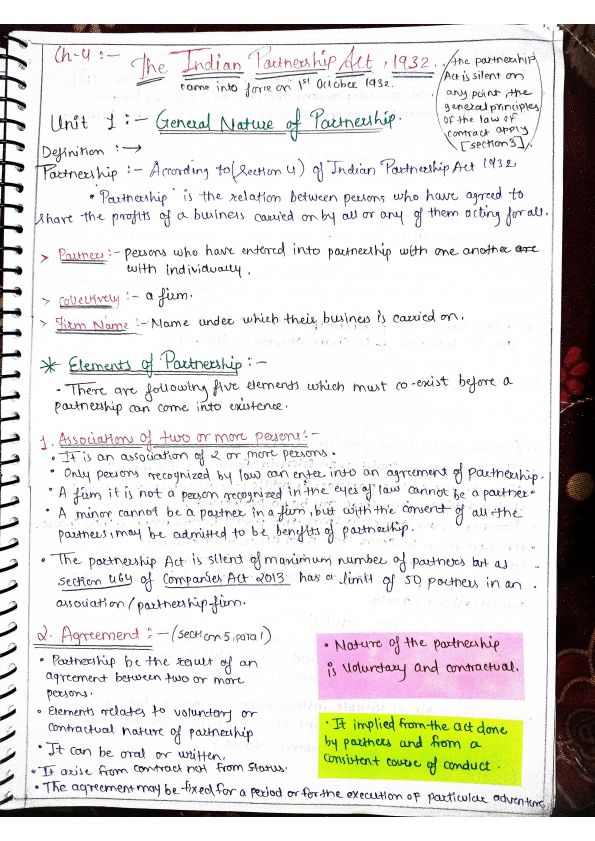 Ch-4 :-
The Indian Partnership Act, 1932.
came into force on 1st October 1932.
the partnership
Act is silent on
any point, the
general principles
of the law of
contract apply
[section 3].
Unit 1 :- General Nature of Partnership.
Definition : →
Partnership :- According to (Section 4) of Indian Partnership Act 1932,
• 'Partnership' is the relation between persons who have agreed to
share the profits of a business carried on by all or any of them acting for all.
> Partners :- persons who have entered into partnership with one another are
with individually.
> collectively :- a firm.
> Firm Name :- Name under which their business is carried on.
* Elements of Partnership :-
• There are following five elements which must co-exist before a
partnership can come into existence.
1. Association of two or more persons :-
• It is an association of 2 or more persons.
• Only persons recognized by law can enter into an agreement of partnership.
• A firm it is not a person recognized in the eyes of law cannot be a partner
• A minor cannot be a partner in a firm, but with the consent of all the
partners, may be admitted to be benefits of partnership.
• The partnership Act is silent of maximum number of partners but as
section 464 of Companies Act 2013 has a limit of 50 partners in an
association / partnership firm.
2. Agreement :- (section 5, para 1)
• Partnership be the result of an
agreement between two or more
persons.
• Elements relates to voluntary or
contractual nature of partnership
• It can be oral or written.
• It arise from contract not from status.
• The agreement may be fixed for a period or for the execution of particular adventure
• Nature of the partnership
is voluntary and contractual.
• It implied from the act done
by partners and from a
consistent course of conduct.